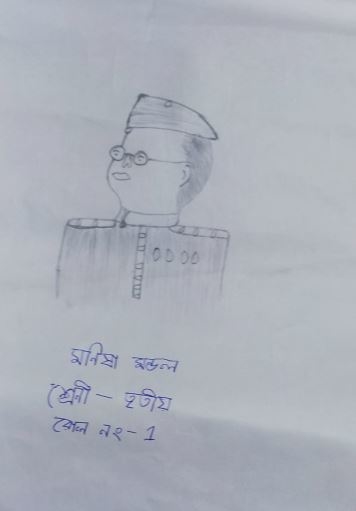 মনিষা মন্ডল
শ্রেনী - তৃতীয়
রোল নং - 1